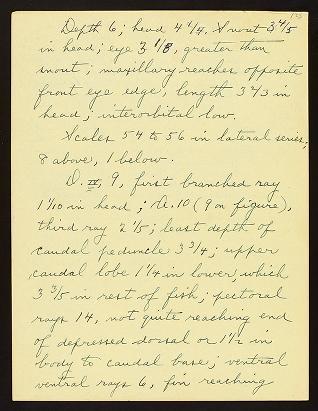 Depth 6; head 4 1/4. Snout 3 4/5
in head; eye 3 1/8, greater than
snout; maxillary reaches opposite
front eye edge, length 3 2/3 in
head; interorbital low.
Scales 54 to 56 in lateral series;
8 above, 1 below.
D. IV, 9, first branched ray
1 1/10 in head; A. 10 (9 on figure),
third ray 2 1/5; least depth of
caudal peduncle 3 3/4; upper
caudal lobe 1 1/4 in lower, which
3 3/5 in rest of fish; pectoral
rays 14, not quite reaching end
of depressed dorsal or 1 1/2 in
body to caudal base; ventral
ventral rays 6, fin reaching